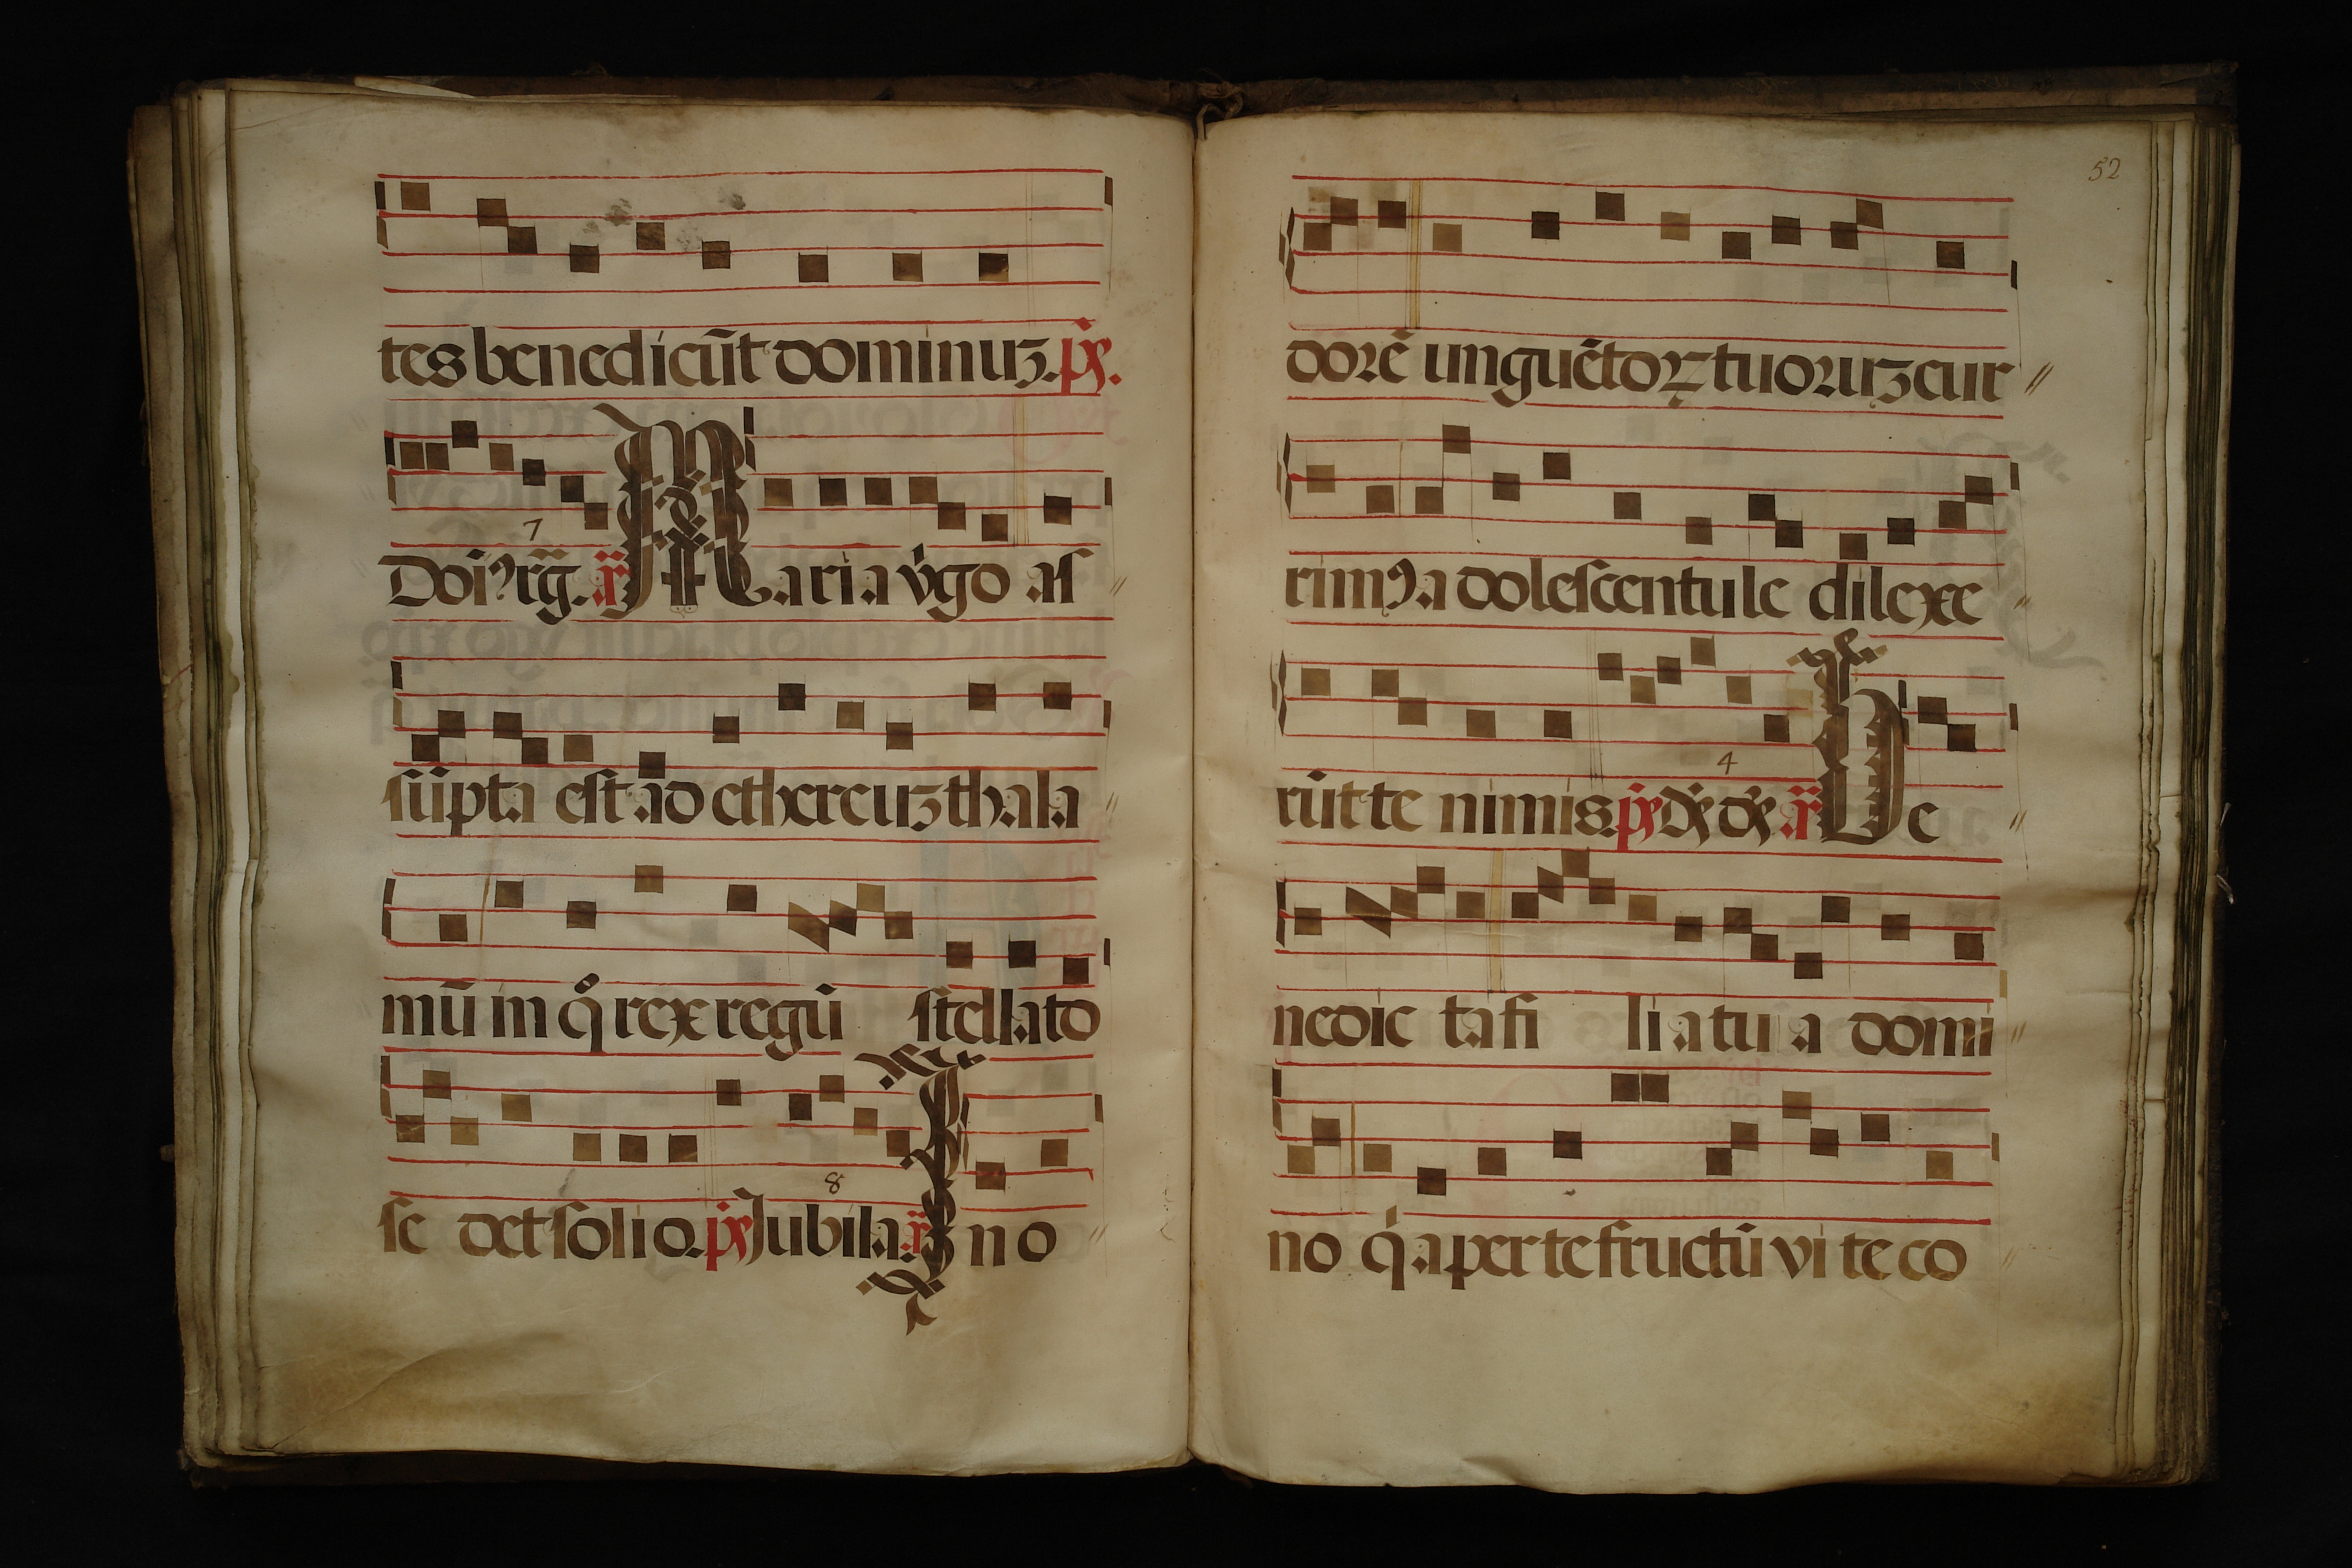 tes benedicūt dominuꝫ. pˢ.
7
Doi᷒ rg̃. añ Maria v̇go aſ
ſūpta eſt ad ethereuꝫ thala
mū in qͦ rex regū ſtellato
8
ſe det ſolio. pˢ Jubila. añ In o
52
dorē unguētoꝝ tuoruꝫ cur
rimꝰ adoleſcentule dilexe
4
rūt te nimis. pˢ Dˢ dˢ añ Be
nedic ta fi li a tu a domi
no q̇a per te fructū vi te co